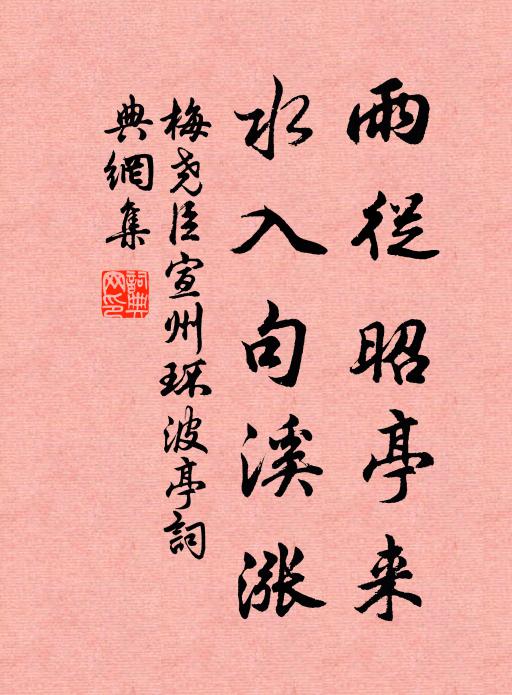 雨從昭亭来
水入句溪漲
梅尧臣宣州環波亭詞
典網集
詞典网印